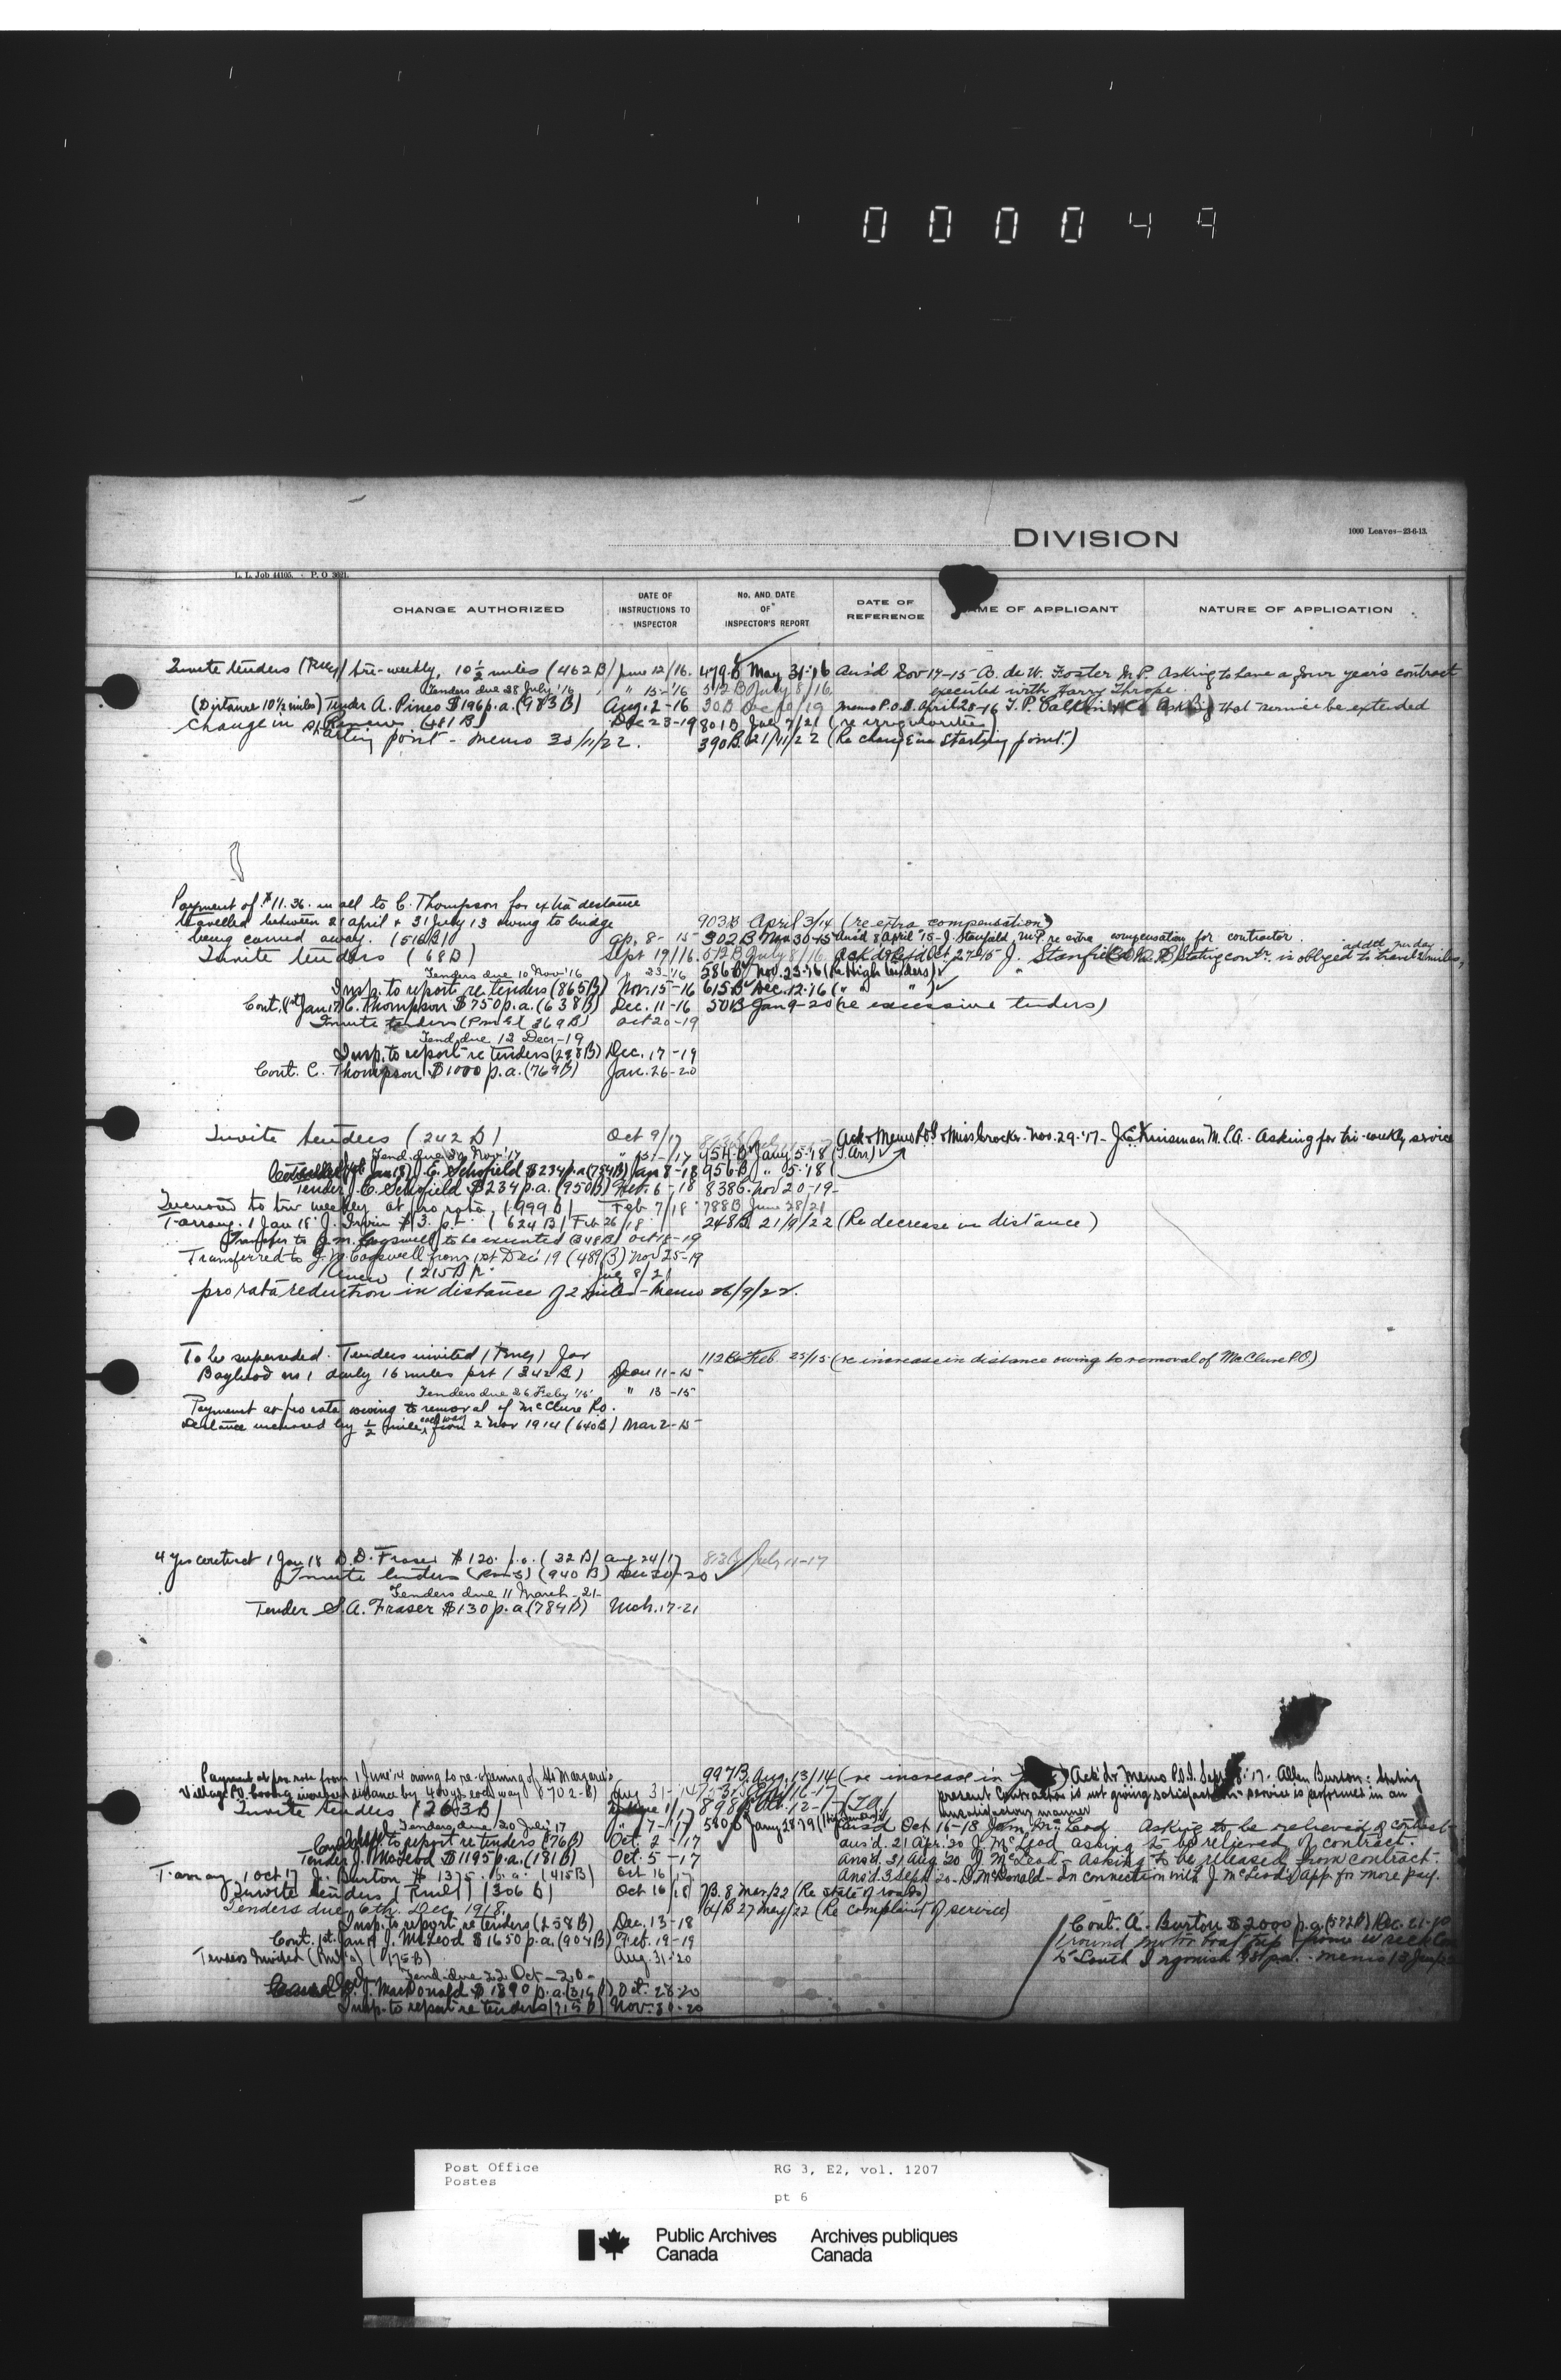 000049
DIVISION
1000 Leaves-23-6-13.
L. L. Job 44105. - P. O 3021.
CHANGE AUTHORIZED
DATE OF INSTRUCTIONS TO INSPECTOR
No. AND DATE OF INSPECTOR'S REPORT
DATE OF REFERENCE
ME OF APPLICANT
NATURE OF APPLICATION
Invite tenders (Rmg) tri-weekly, 10½ miles (462 B) June 12/16. 479 B May 31-16 Ans'd Nov 19-15 A. de W. Foster M.P. Asking to have a four year's contract
Tenders due 28 July '16 " 15-16 512 B July 8/16 executed with Harry Thorpe.
(Distance 10½ miles) Tender A. Pineo $196 p.a. (983 B) Aug. 2-16 30 B Dec 19 memo P.O.S. April 28-16 T. P. Calkin & Co asking that service be extended
Renew (481 B) Dec 23-19 801 B July 7/21 (re irregularities)
Change in starting point - memo 30/11/22. 390 B 21/11/22 (Re change in starting point.)
Payment of $11.36. in all to C. Thompson for extra distance
travelled between 21 April & 31 July 13 owing to bridge 903 B April 3/14 (re extra compensation)
being carried away. (516 B) ap. 8-15 302 B Mar 30-15 Ans'd 8 April '15 - J. Stanfield, M.P. re extra compensation for contractor.
Invite tenders (68 B) Sept 19/16. 512 B July 8/16 Ack'd Oct 27-15 J. Stanfield M.P. Stating contr. is obliged to travel 2 miles, added per day
Tenders due 10 Nov '16 " 23-16 586 B Nov. 23-16 (re High tenders)
Insp. to report re tenders (865 B) Nov. 15-16 615 B Dec. 12-16 (" " ")
Cont. 1st Jan 17 C. Thompson $750 p.a. (638 B) Dec. 11-16 50 B Jan 9-20 (re excessive tenders)
Invite tenders (Pms) (369 B) Oct 20-19
Tend. due 12 Dec-19
Insp. to report re tenders (298 B) Dec. 17-19
Cont. C. Thompson $1000 p.a. (769 B) Jan. 26-20
Invite tenders (242 B) Oct 9/17 Ack & Memo P.O.S. & Miss Crocker Nov. 29-'17 - J. E. Kinsman M.L.A. - Asking for tri-weekly service
Tend. due 30 Nov '17 954 B Jany 5-18
Cancelled J. E. Schofield $234 p.a. (754 B) Jan 8-18 956 B " 5-18
Tender J. E. Schofield $234 p.a. (950 B) Feb. 6-18 838 B. Nov 20-19-
Increased to tri weekly at pro rata (999 B) Feb 7/18 788 B June 28/21
T-arrang. 1 Jan 18 J. Irvin $3. p.t. (624 B) Feb 26/18 248 B 21/9/22 (Re decrease in distance)
Transfer to J. M. Cogswell to be executed (348 B) Oct 18-19
Transferred to J. M. Cogswell from 1st Dec 19 (489 B) Nov 25-19
Renew (215 B) July 8/21
pro rata reduction in distance of 2 miles - Memo 26/9/22.
To be superseded. Tenders invited (Rmg) for 112 B Feb 25/15 (re increase in distance owing to removal of McClure P.O.)
Bayhead no 1 daily 16 miles prt (342 B) Jan 11-15
Tenders due 26 Feby '15 " 13-15
Payment at pro rata owing to removal of McClure P.O.
distance increased by ½ mile each way from 2 Nov 1914 (640 B) Mar 2-15
4 yrs contract 1 Jan 18 D. D. Fraser $120. p.a. (32 B) Aug 24/17 813 B July 11-17
Invite tenders (Rms) (940 B) Dec 20-20
Tenders due 11 March-21-
Tender S. A. Fraser $130 p.a. (784 B) Mch. 17-21
Payment at pro rata from 1 June '14 owing to re-opening of St. Margaret's 997 B. Aug. 13/14 (re increase in Ack'd & Memo P.O.S. Sept 8 '17. Allan Burton: Stating
Village P.O. having increased distance by 440 yds each way (702-B) Aug 31-14 present contractor is not giving satisfaction - service is performed in an
Invite tenders (263 B) June 1/17 898 B Oct-12-17 unsatisfactory manner
Tenders due 20 July '17 " 7-17 580 B Jany 28-19 Ans'd Oct 16-18 McLeod Asking to be relieved of contract-
Insp. to report re tenders (76 B) Oct. 2-17 ans'd. 21 Apr. '20 J. McLeod asking to be relieved of contract.
Tender J. McLeod $1195 p.a. (181 B) Oct. 5-17 ans'd. 31 Aug '20 J. McLeod - asking to be released from contract.
T-arrang. 1 Oct 17 J. Burton $1375. p.a. (415 B) Oct 16/17 Ans'd. 3 Sept 20 - D. McDonald - In connection with J. McLeod's app. for more pay.
Invite tenders (Rml) (306 B) Oct 16/18 7 B. 8 Mar/22 (Re state of roads)
Tenders due 6th. Dec. 1918. 64 B 27 May/22 (Re complaint of service)
Insp. to report re tenders (258 B) Dec. 13-18 Cont. A. Burton $2000 p.a. (572 B) Dec. 21-20
Cont. 1st. Jan 19 J. McLeod $1650 p.a. (904 B) Feb. 19-19 1 round motor boat trip from Wreck Cove
Tenders Invited (175 B) Aug. 31-20 to South Ingonish memo 13 Jan
Tend. due 22 Oct-20-
D. J. MacDonald $1890 p.a. Oct. 28-20
Insp. to report re tenders (215 B) Nov. 30-20
Post Office
Postes
RG 3, E2, vol. 1207
pt 6
Public Archives Canada
Archives publiques Canada